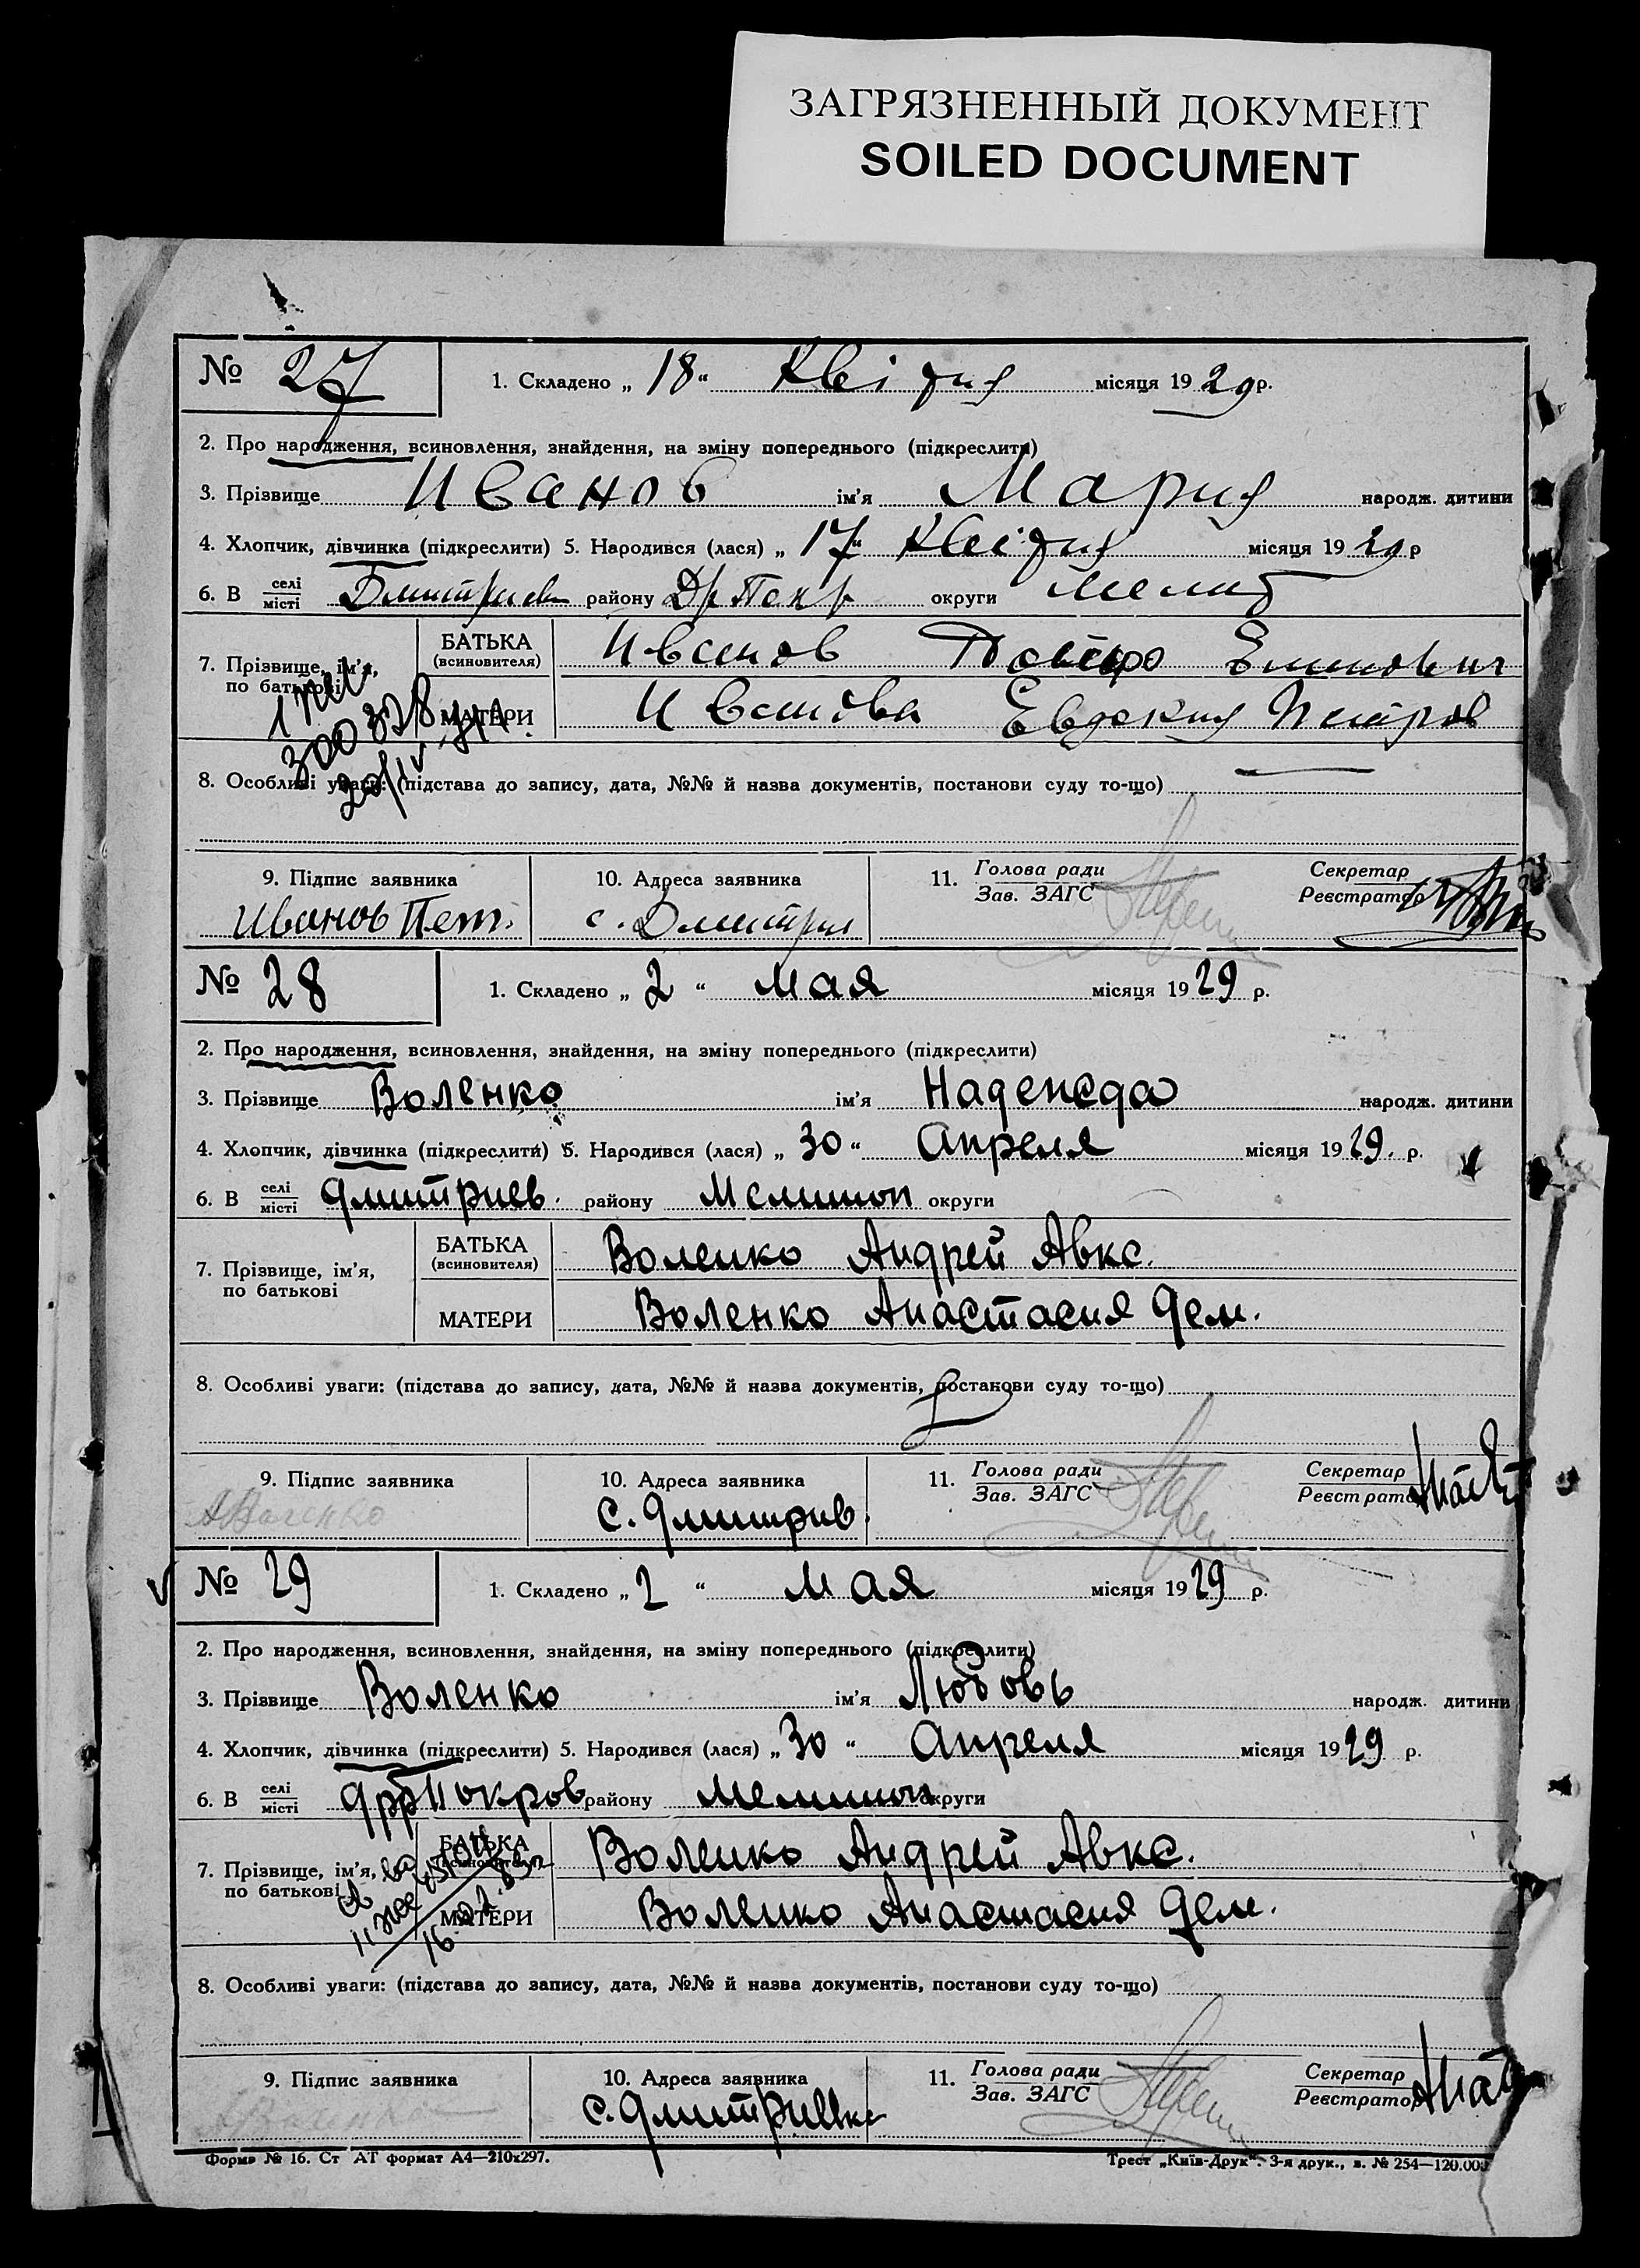 ЗАГРЯЗНЕННЫЙ ДОКУМЕНТ
SOILED DOCUMENT
№ 27 1. Складено „ 18 “ Квітня місяця 1929 р.
2. Про народження, всиновлення, знайдення, на зміну попереднього (підкреслити)
3. Прізвище Иванов ім'я Мария народж. дитини
4. Хлопчик, дівчинка (підкреслити) 5. Народився (лася) „ 17 “ Квітня місяця 1929 р
6. В селі/місті Дмитриев району Др Покр округи Мелит
7. Прізвище, ім'я, по батькові
БАТЬКА (всиновителя) Иванов
МАТЕРИ Иванова Евдокия Петров
8. Особливі уваги: (підстава до запису, дата, №№ й назва документів, постанови суду то-що)
9. Підпис заявника 10. Адреса заявника 11. Голова ради Секретар
Зав. ЗАГС Реєстратор
Иванов Пет. с. Дмитрив
№ 28 1. Складено „ 2 “ мая місяця 1929 р.
2. Про народження, всиновлення, знайдення, на зміну попереднього (підкреслити)
3. Прізвище Воленко ім'я Надежда народж. дитини
4. Хлопчик, дівчинка (підкреслити) 5. Народився (лася) „ 30 “ Апреля місяця 1929. р.
6. В селі/місті Дмитриев. району Мелитоп округи
7. Прізвище, ім'я, по батькові
БАТЬКА (всиновителя) Воленко Андрей Авкс.
МАТЕРИ Воленко Анастасия Дем.
8. Особливі уваги: (підстава до запису, дата, №№ й назва документів, постанови суду то-що)
9. Підпис заявника 10. Адреса заявника 11. Голова ради Секретар
Зав. ЗАГС Реєстратор
АВоленко с. Дмитрив.
№ 29 1. Складено „ 2 “ мая місяця 1929 р.
2. Про народження, всиновлення, знайдення, на зміну попереднього (підкреслити)
3. Прізвище Воленко ім'я Любовь народж. дитини
4. Хлопчик, дівчинка (підкреслити) 5. Народився (лася) „ 30 “ Апреля місяця 1929 р.
6. В селі/місті району Мелитоп округи
7. Прізвище, ім'я, по батькові
БАТЬКА (всиновителя) Воленко Андрей Авкс.
МАТЕРИ Воленко Анастасия Дем.
8. Особливі уваги: (підстава до запису, дата, №№ й назва документів, постанови суду то-що)
9. Підпис заявника 10. Адреса заявника 11. Голова ради Секретар
Зав. ЗАГС Реєстратор
с. Дмитривка
Форма № 16. Ст АТ формат А4—210х297. Трест „Київ-Друк“. 3-я друк., з. № 254—120.000